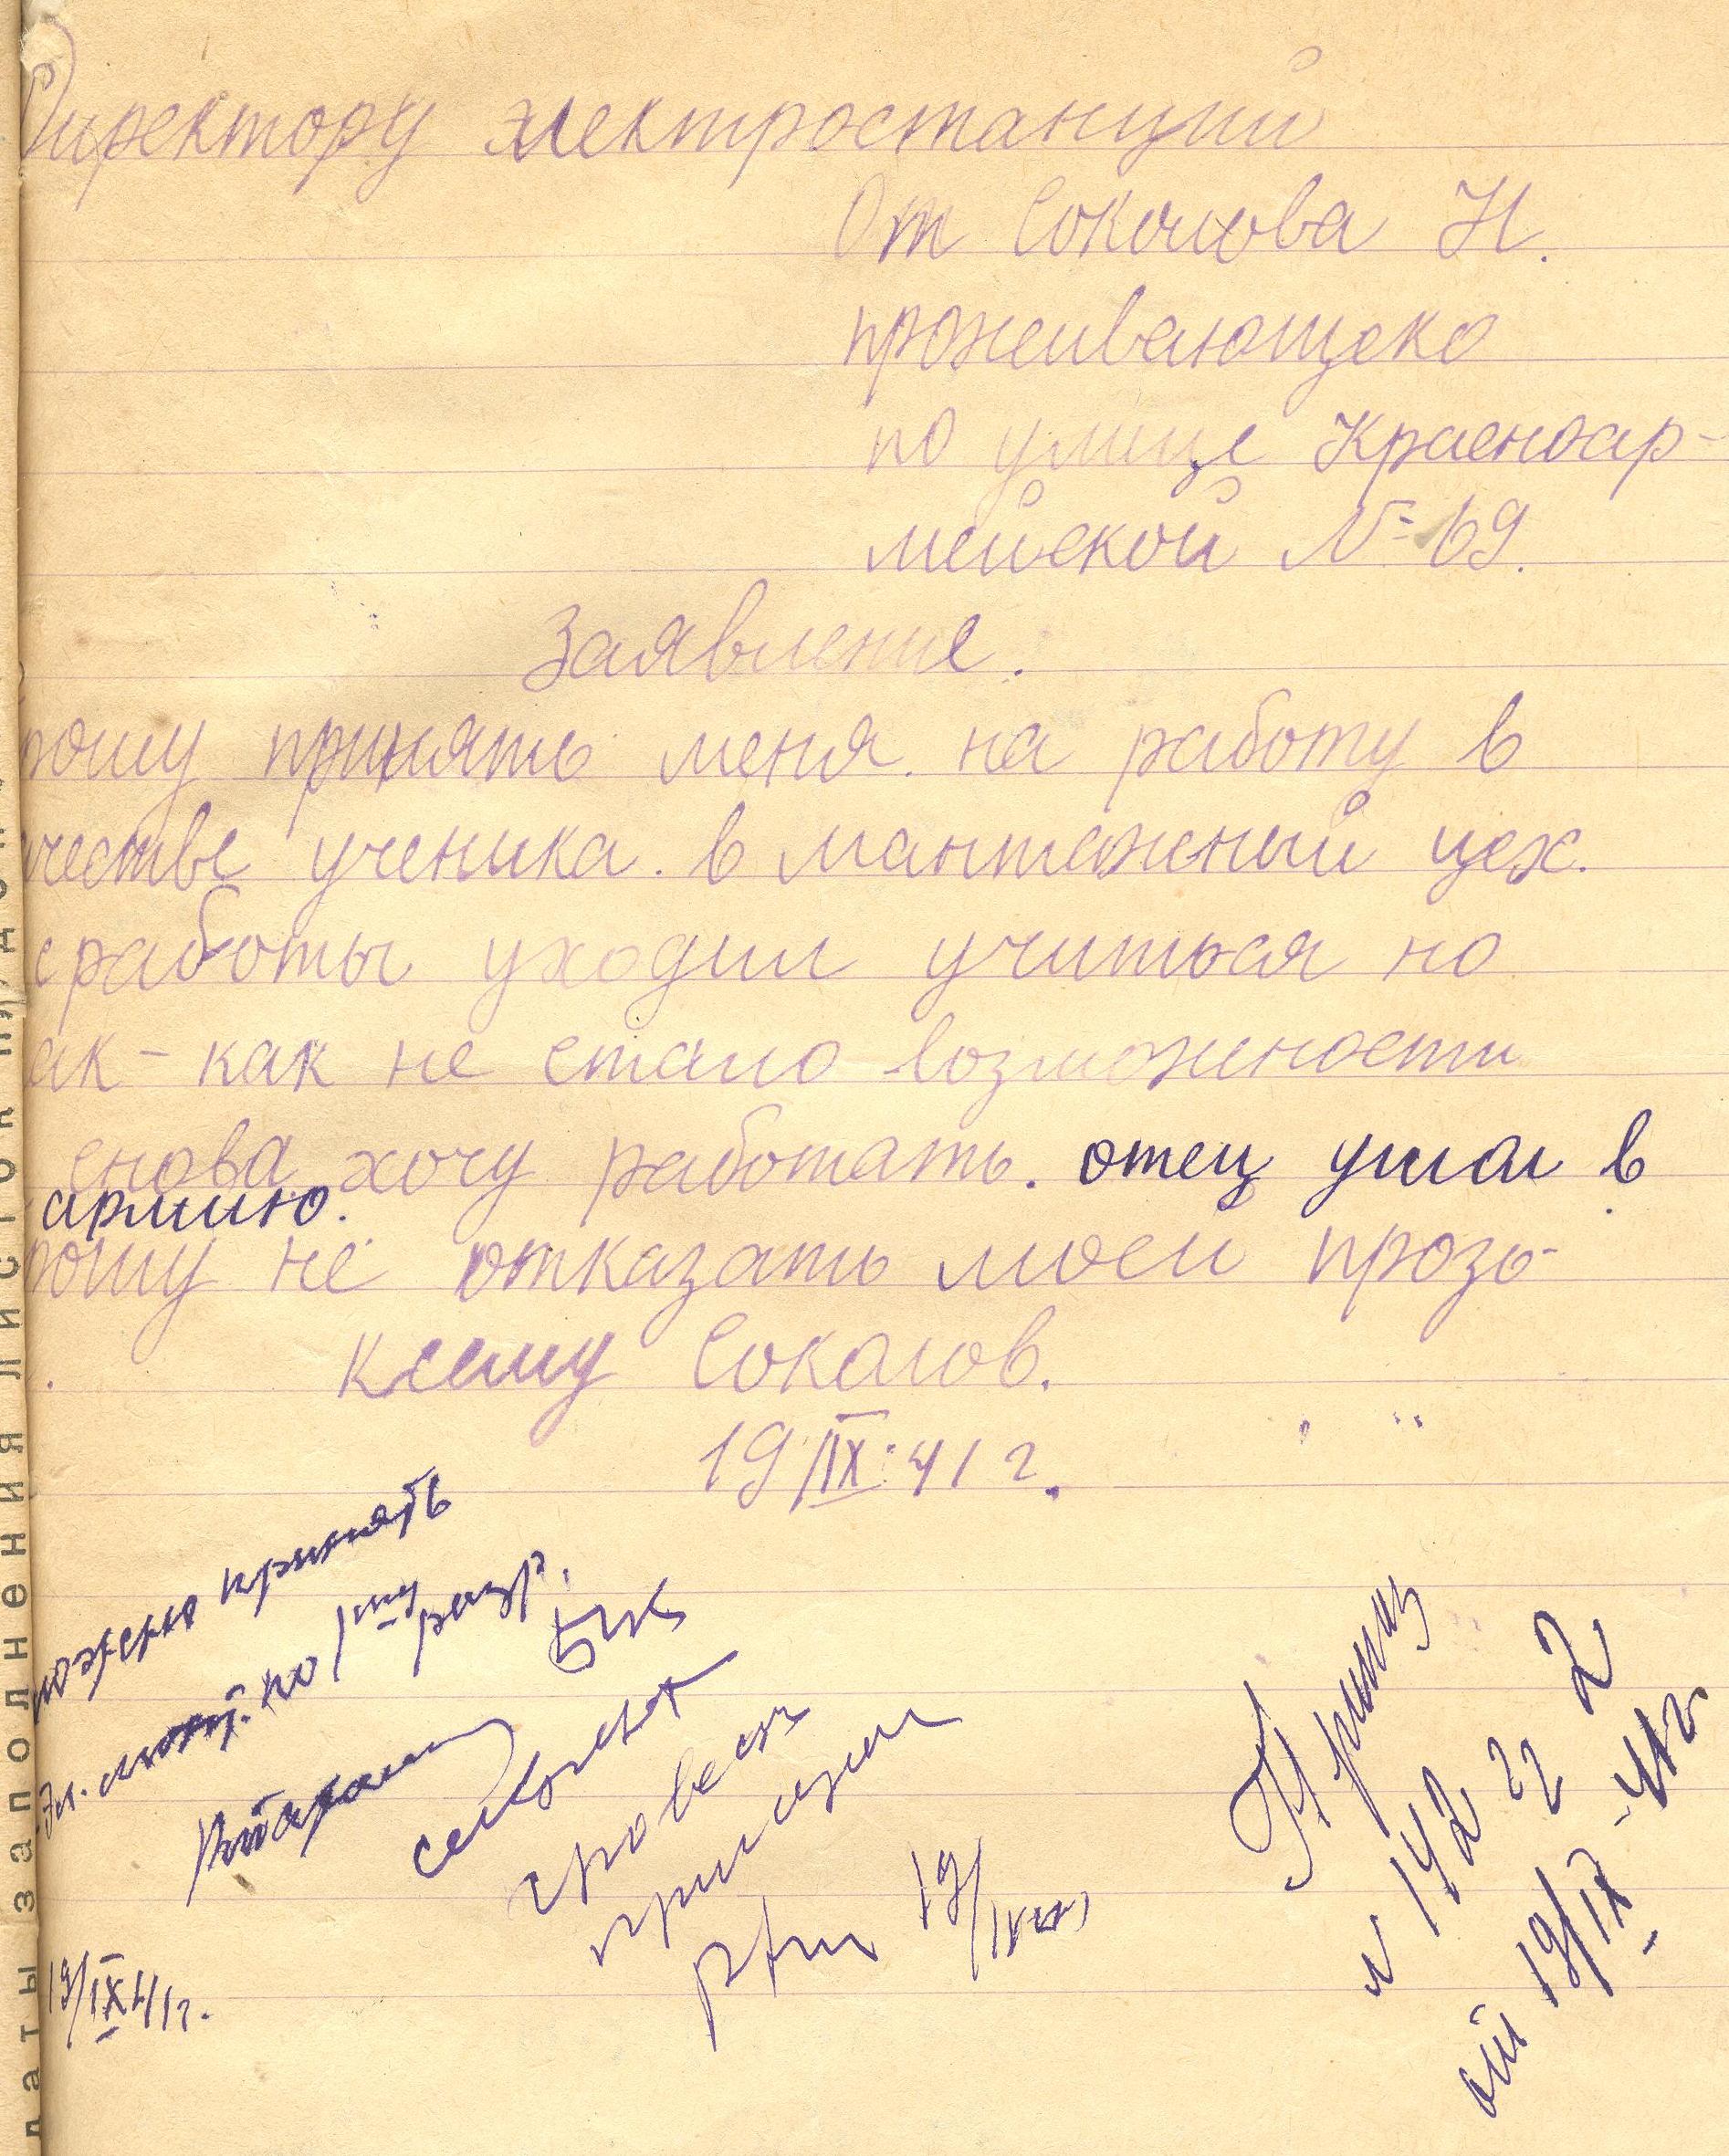 Директору электростанции
От Соколова Н.
проживающеко
по улице Красноар-
мейской № 69.
Заявление.
рошу принять меня на работу в
ачестве ученика в мантажный цех.
с работы уходил учиться но
ак-как не стало возможности
снова хочу работать. отец ушол в
армию.
рошу не отказать моей прозь-
к сему Соколов.
19/IX-41 г.
можно принять
эл. монт. по 1му разр.
19/IX 41г.
19/IX
Приказ
142
от 19/IX-41г
латы заполнения листок